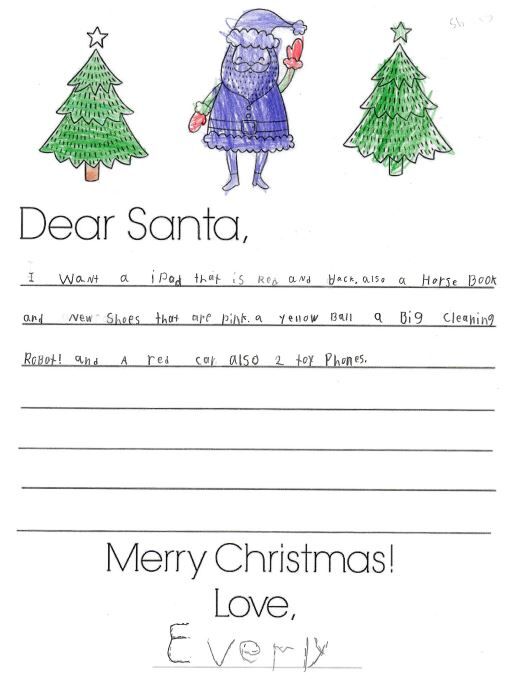 Dear Santa,
I Want a iPad that is Red and back, also a Horse Book
and New Shoes that are pink. a yellow Ball a Big Cleaning
ROBOt! and A red car also 2 toy Phones.
Merry Christmas!
Love,
Everly